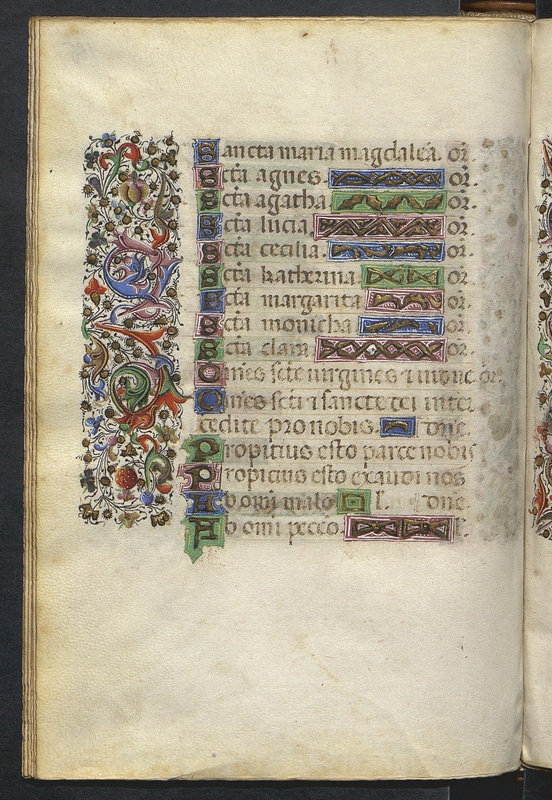 Sancta maria magdalẽa. or̃.
Sctã agnes or̃.
Sctã agatha or̃.
Sctã lucia or̃.
Sctã cecilia or̃.
Sctã katherina or̃.
Sctã margarita or̃.
Sctã monicha or̃.
Sctã clara or̃.
Om̃es scte uirgines ⁊ uidue or̃.
Om̃es scti ⁊ sancte dei inter
cedite pro nobis. dñe.
Propitius esto parce nobis
Propicius esto exaudi nos
Ab omi malo l. dñe.
Ab omi pecc̃o